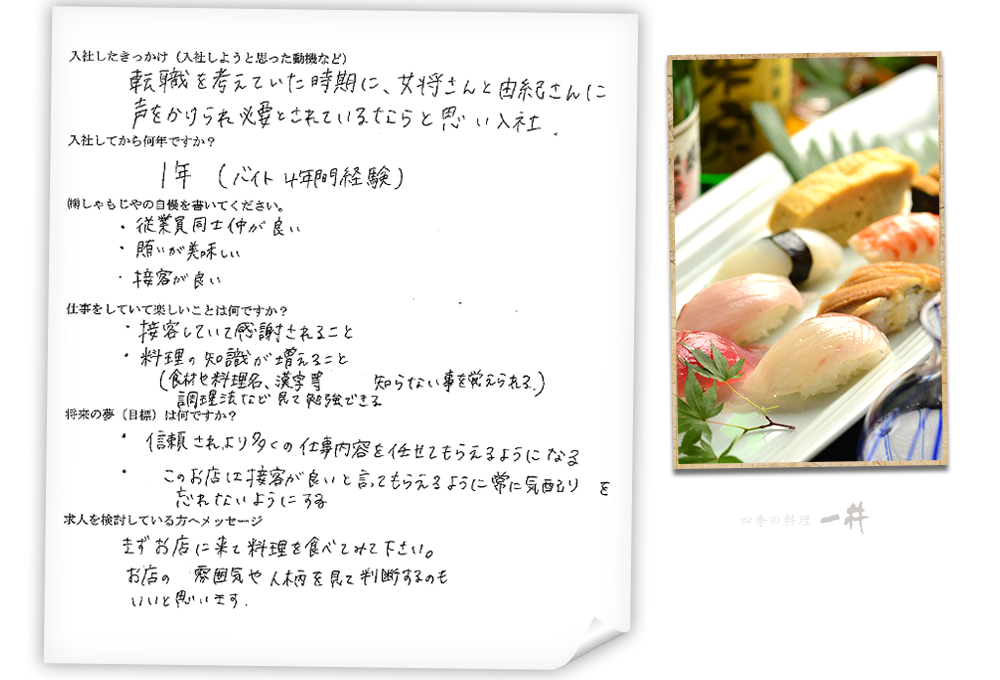 入社したきっかけ（入社しようと思った動機など）
転職を考えていた時期に、女将さんと由紀さんに
声をかけられ必要とされているならと思い入社.
入社してから何年ですか？
1年 （バイト 4年間経験）
㈲しゃもじやの自慢を書いてください。
・従業員同士仲が良い
・賄いが美味しい
・接客が良い
仕事をしていて楽しいことは何ですか？
・接客していて感謝されること
・料理の知識が増えること
（食材や料理名、漢字等 知らない事を覚えられる.）
調理法など見て勉強できる
将来の夢（目標）は何ですか？
・信頼され、より多くの仕事内容を任せてもらえるようになる
・このお店は接客が良いと言ってもらえるように常に気配りを
忘れないようにする
求人を検討している方へメッセージ
まずお店に来て料理を食べてみて下さい。
お店の 雰囲気や人柄を見て判断するのも
いいと思います.
四季の料理 一井